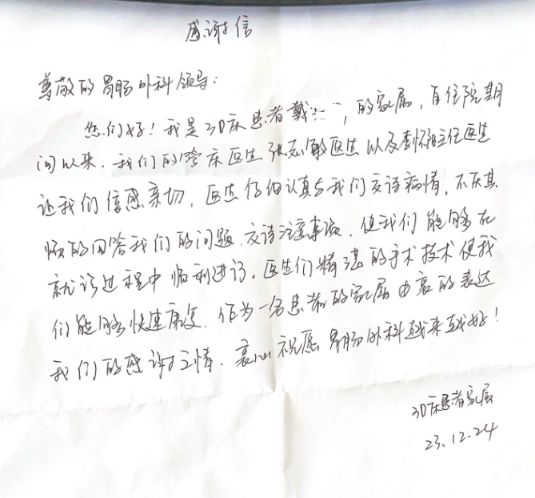 感谢信
尊敬的胃肠外科领导:
您们好!我是30床患者戴 的家属,自住院期
间以来,我们的管床医生张志敏医生以及李怀主任医生
让我们倍感亲切,医生仔细认真与我们交谈病情,不厌其
烦的回答我们的问题交待注意事项,使我们能够在
就诊过程中顺利进行。医生们精湛的手术技术使我
们能够快速康复,作为一名患者的家属由衷的表达
我们的感谢之情,衷心祝愿胃肠外科越来越好!
30床患者家属
23.12.24